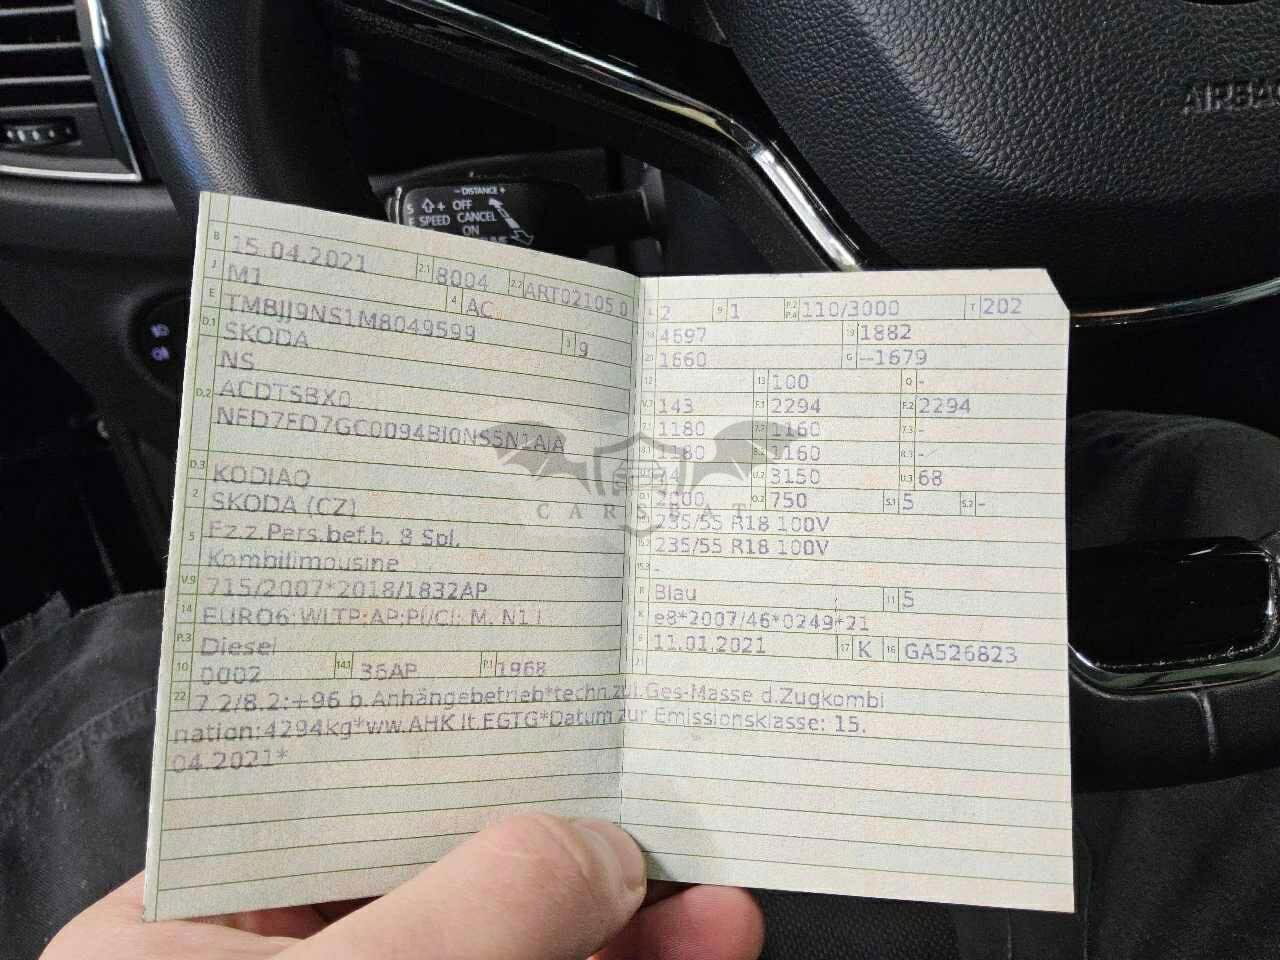 AIRBAG
- DISTANCE +
S + OFF
SPEED CANCEL
ON
B 15.04.2021 2.1 8004 2.2 ART02105 0
J M1 4 AC
E TMBJJ9NS1M8049599 3 9
D.1 SKODA
D.2 NS
ACDTSBX0
NFD7FD7GC0094BJ0NS5N1AJA
D.3 KODIAQ
2 SKODA (CZ)
5 Fz.z.Pers.bef.b. 8 Spl.
Kombilimousine
V.9 715/2007*2018/1832AP
14 EURO6 WLTP:AP:PI/CI: M, N1 I
P.3 Diesel
10 0002 14.1 36AP P.1 1968
L 2 9 1 P.2 P.4 110/3000 T 202
18 4697 19 1882
20 1660 G --1679
12 13 100 Q -
V.7 143 F.1 2294 F.2 2294
7.1 1180 7.2 1160 7.3 -
8.1 1180 8.2 1160 8.3 -
U.1 74 U.2 3150 U.3 68
O.1 2000 O.2 750 S.1 5 S.2 -
15.1 235/55 R18 100V
15.2 235/55 R18 100V
15.3 -
R Blau 11 5
K e8*2007/46*0249*21
6 11.01.2021 17 K 16 GA526823
21
22 7.2/8.2:+96 b.Anhängebetrieb*techn.zul.Ges-Masse d.Zugkombi
nation:4294kg*ww.AHK lt.EGTG*Datum zur Emissionsklasse: 15.
04.2021*
CARSBAT